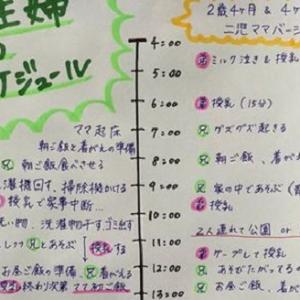 主婦
の
ケジュール
2歳4ヶ月 & 4ヶ
二児ママバージ
4:00
ミルク泣き & 授乳
5:00
6:00
授乳 (15分)
ママ起床
7:00
グズグズ起きる
朝ご飯と着がえの準備
朝ご飯食べさせる
8:00
朝ご飯、着が
濯機回す、掃除機かける
9:00
家の中であそぶ
授乳で家事中断…
授乳
洗い物、洗濯物干す、ゴミ出す
10:00
2人連れて公園 or
とあそぶ
授乳する
11:00
ケープして授乳
お昼ご飯の準備、
着がえる
12:00
あそびたがってるの
終わり次第ママ朝ご飯
13:00
お昼ご飯